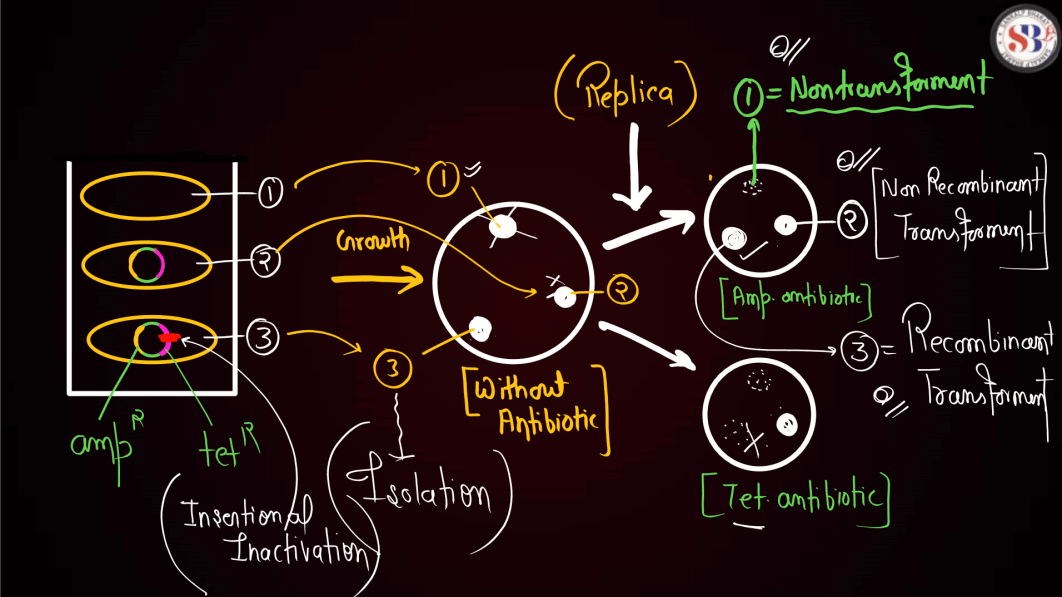 (Replica)
① = Nontransforment
②
[Non Recombinant
Transforment]
[Amp. antibiotic]
③ = Recombinant
Transforment
[Tet. antibiotic]
①
②
③
Growth
①
②
③
[Without
Antibiotic]
amp R
tet R
(Insertional
Inactivation)
(Isolation)
SB